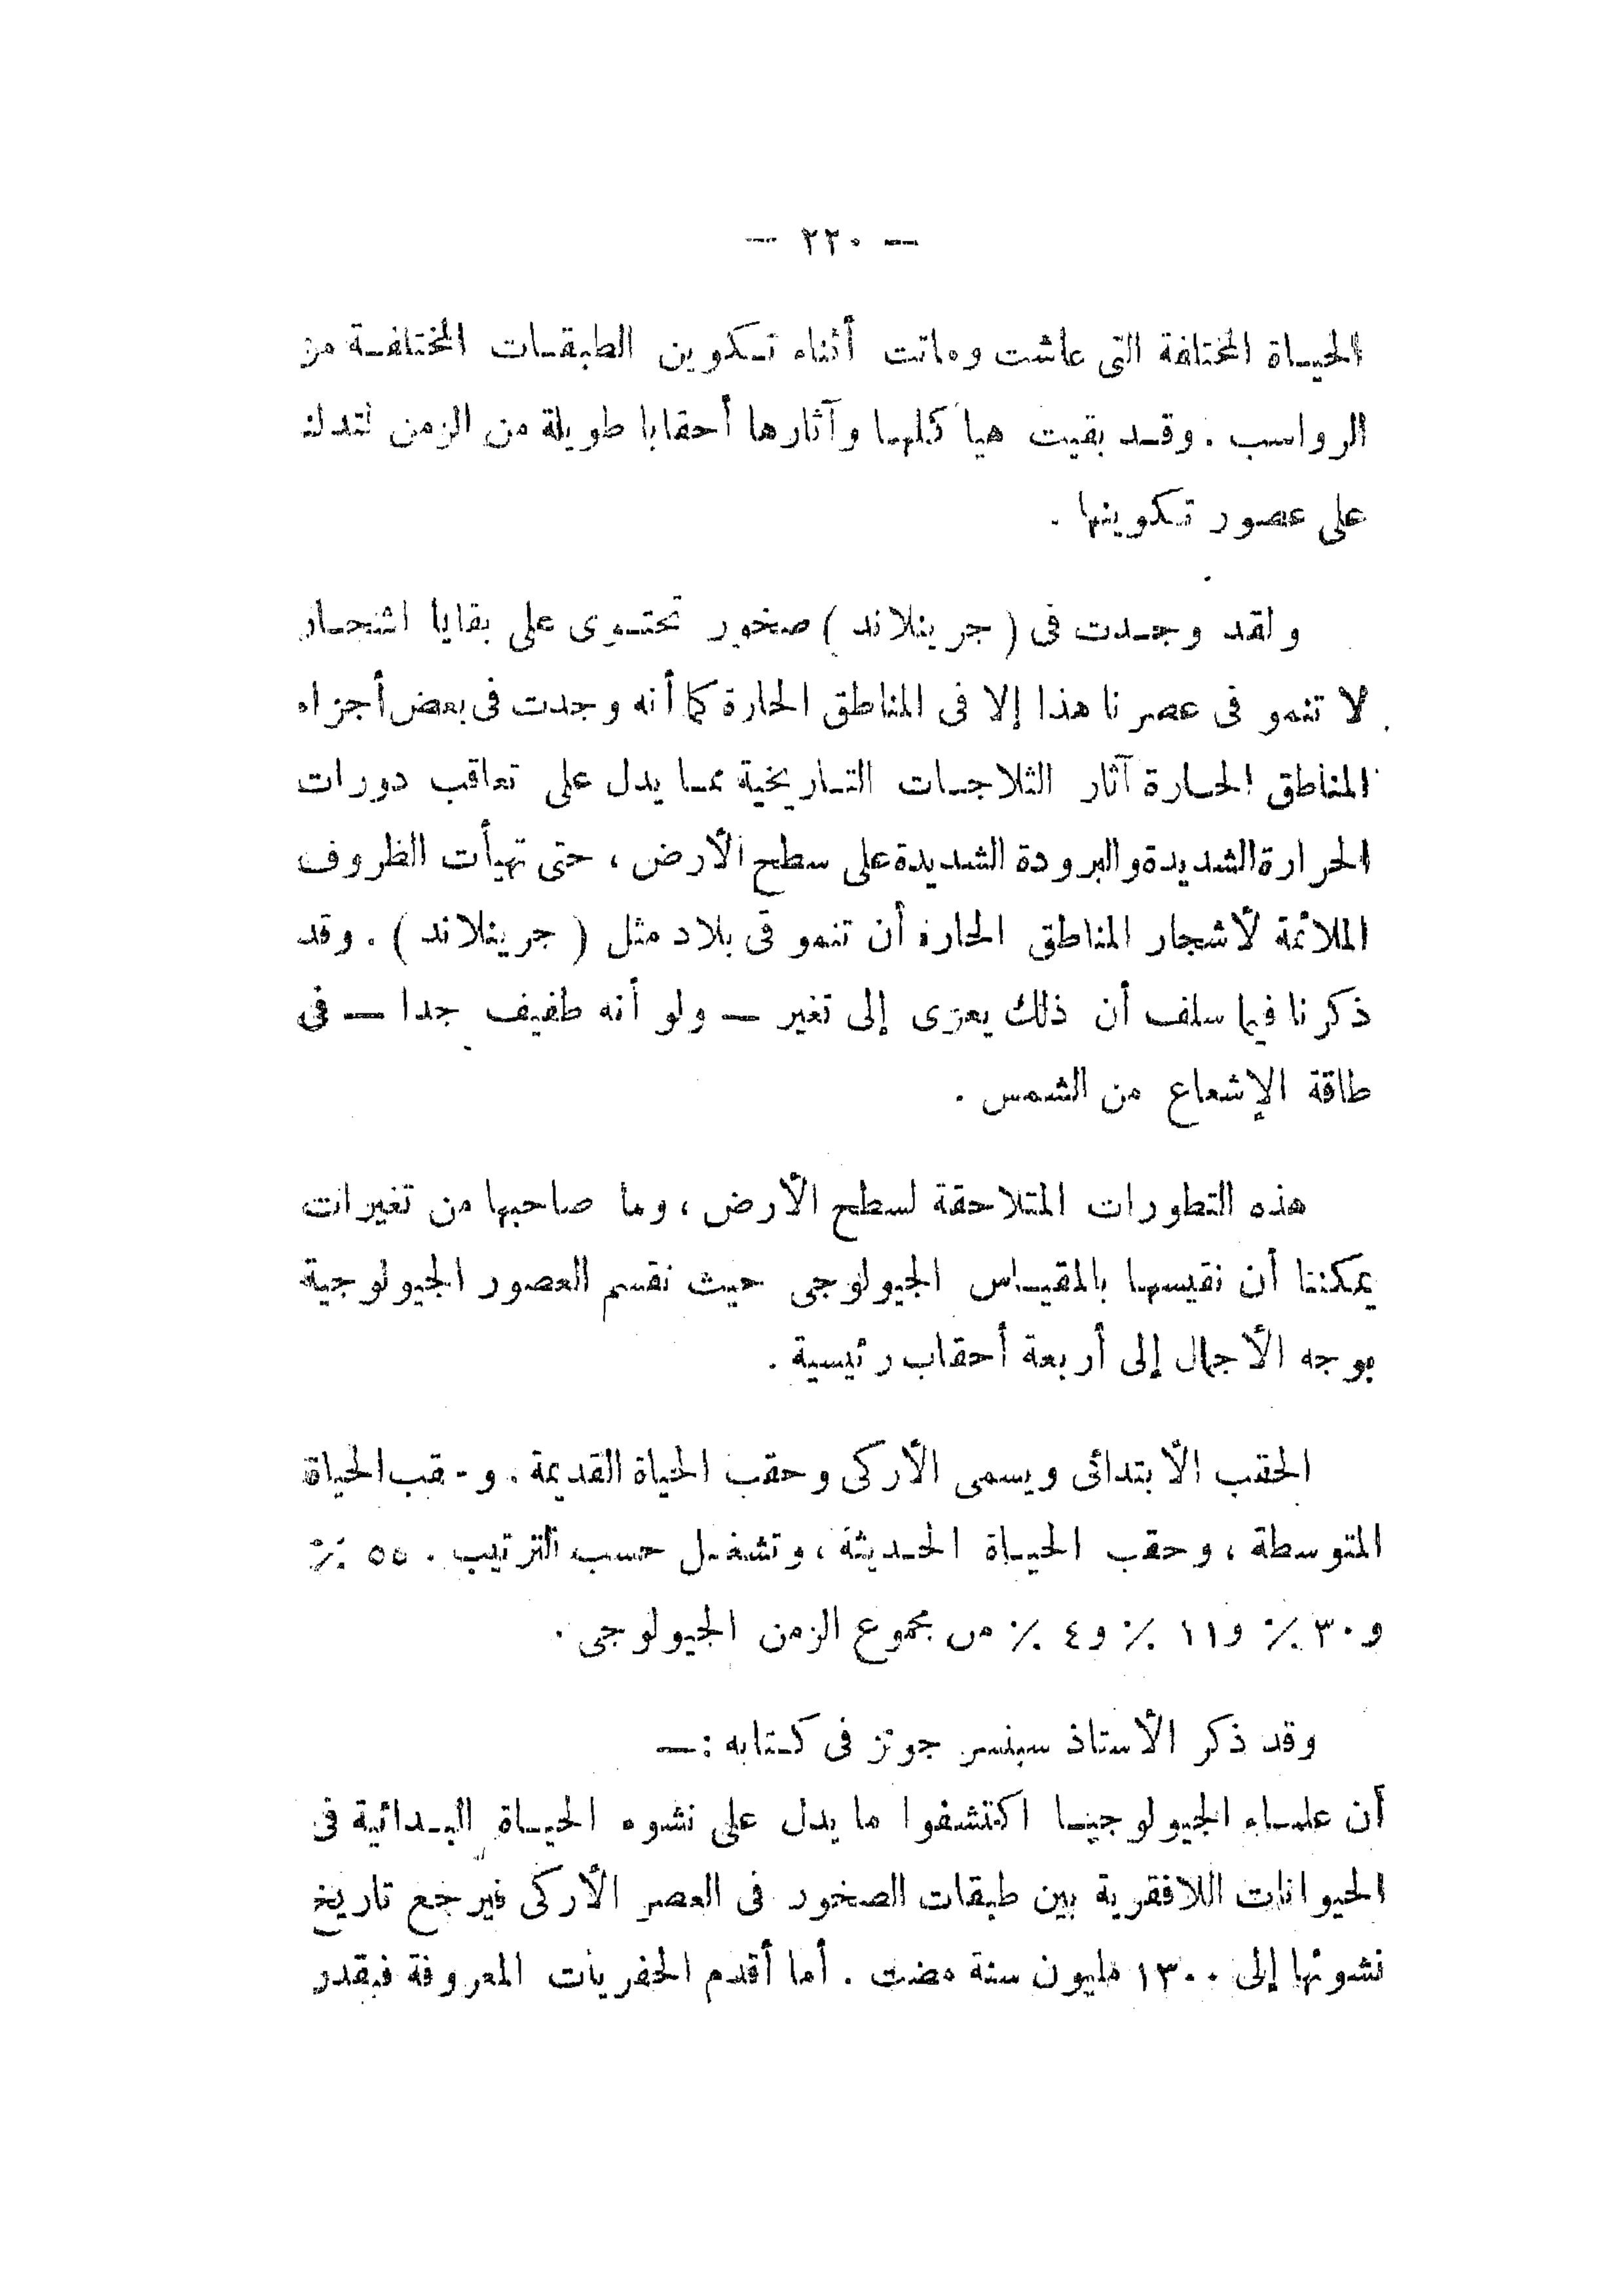 — ٢٢٠ —
الحيـاة المختلفة التى عاشت وماتت أثناء تـكوين الطبقـات المختلفـة من
الرواسب . وقـد بقيت هياكلهـا وآثارها أحقابا طويلة من الزمن لتدلنا
على عصور تـكوينها .
ولقد وجـدت فى ( جرينلاند ) صخور تحتـوى على بقايا اشجـار
لا تنمو فى عصرنا هذا إلا فى المناطق الحارة كما أنه وجدت فى بعض أجزاء
المناطق الحـارة آثار الثلاجـات التـاريخية ممـا يدل على تعاقب دورات
الحرارة الشديدة والبرودة الشديدة على سطح الأرض ، حتى تهيأت الظروف
الملائمة لأشجار المناطق الحارة أن تنمو فى بلاد مثل ( جرينلاند ) . وقد
ذكرنا فيما سلف أن ذلك يعزى إلى تغير — ولو أنه طفيف جدا — فى
طاقة الإشعاع من الشمس .
هذه التطورات المتلاحقة لسطح الأرض ، وما صاحبها من تغيرات
يمكننا أن نقيسهـا بالمقيـاس الجيولوجى حيث نقسم العصور الجيولوجية
بوجه الأجمال إلى أربعة أحقاب رئيسية .
الحقب الأبتدائى ويسمى الأركى وحقب الحياة القديمة . وحقب الحياة
المتوسطة ، وحقب الحيـاة الحـديثة ، وتشغـل حسب الترتيب . ٥٥ ٪
و٣٠ ٪ و١١ ٪ و٤ ٪ من مجموع الزمن الجيولوجى .
وقد ذكر الأستاذ سبنسر جونز فى كـتابه : —
أن علمـاء الجيولوجيـا اكتشفوا ما يدل على نشوء الحيـاة البـدائية فى
الحيوانات اللافقرية بين طبقات الصخور فى العصر الأركى فيرجع تاريخ
نشوئها إلى ١٣٠٠ مليون سنة مضت . أما أقدم الحفريات المعروفة فيقدر